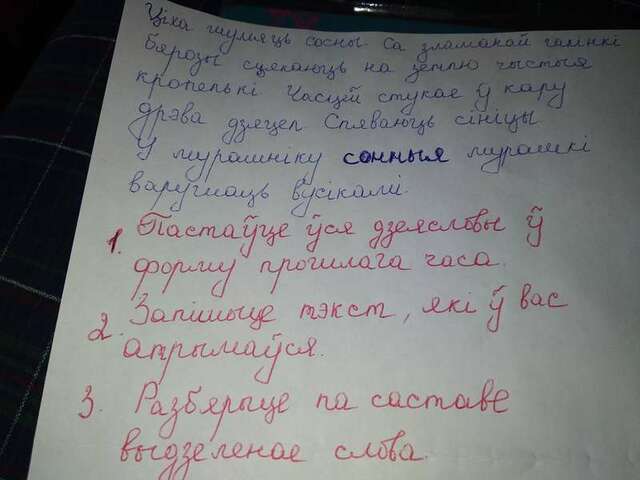 Ціха шумяць сосны. Са зламанай галінкі
бярозы сцякаюць на зямлю чыстыя
кропелькі Часцей стукае ў кару
дрэва дзяцел Спяваюць сініцы
У мурашніку сонныя мурашкі
варушаць вусікамі.
1. Пастаўце ўсе дзеясловы ў
форму прошлага часа.
2. Запішыце тэкст, які ў вас
атрымаўся.
3. Разбярыце па саставе
выдзеленае слова.